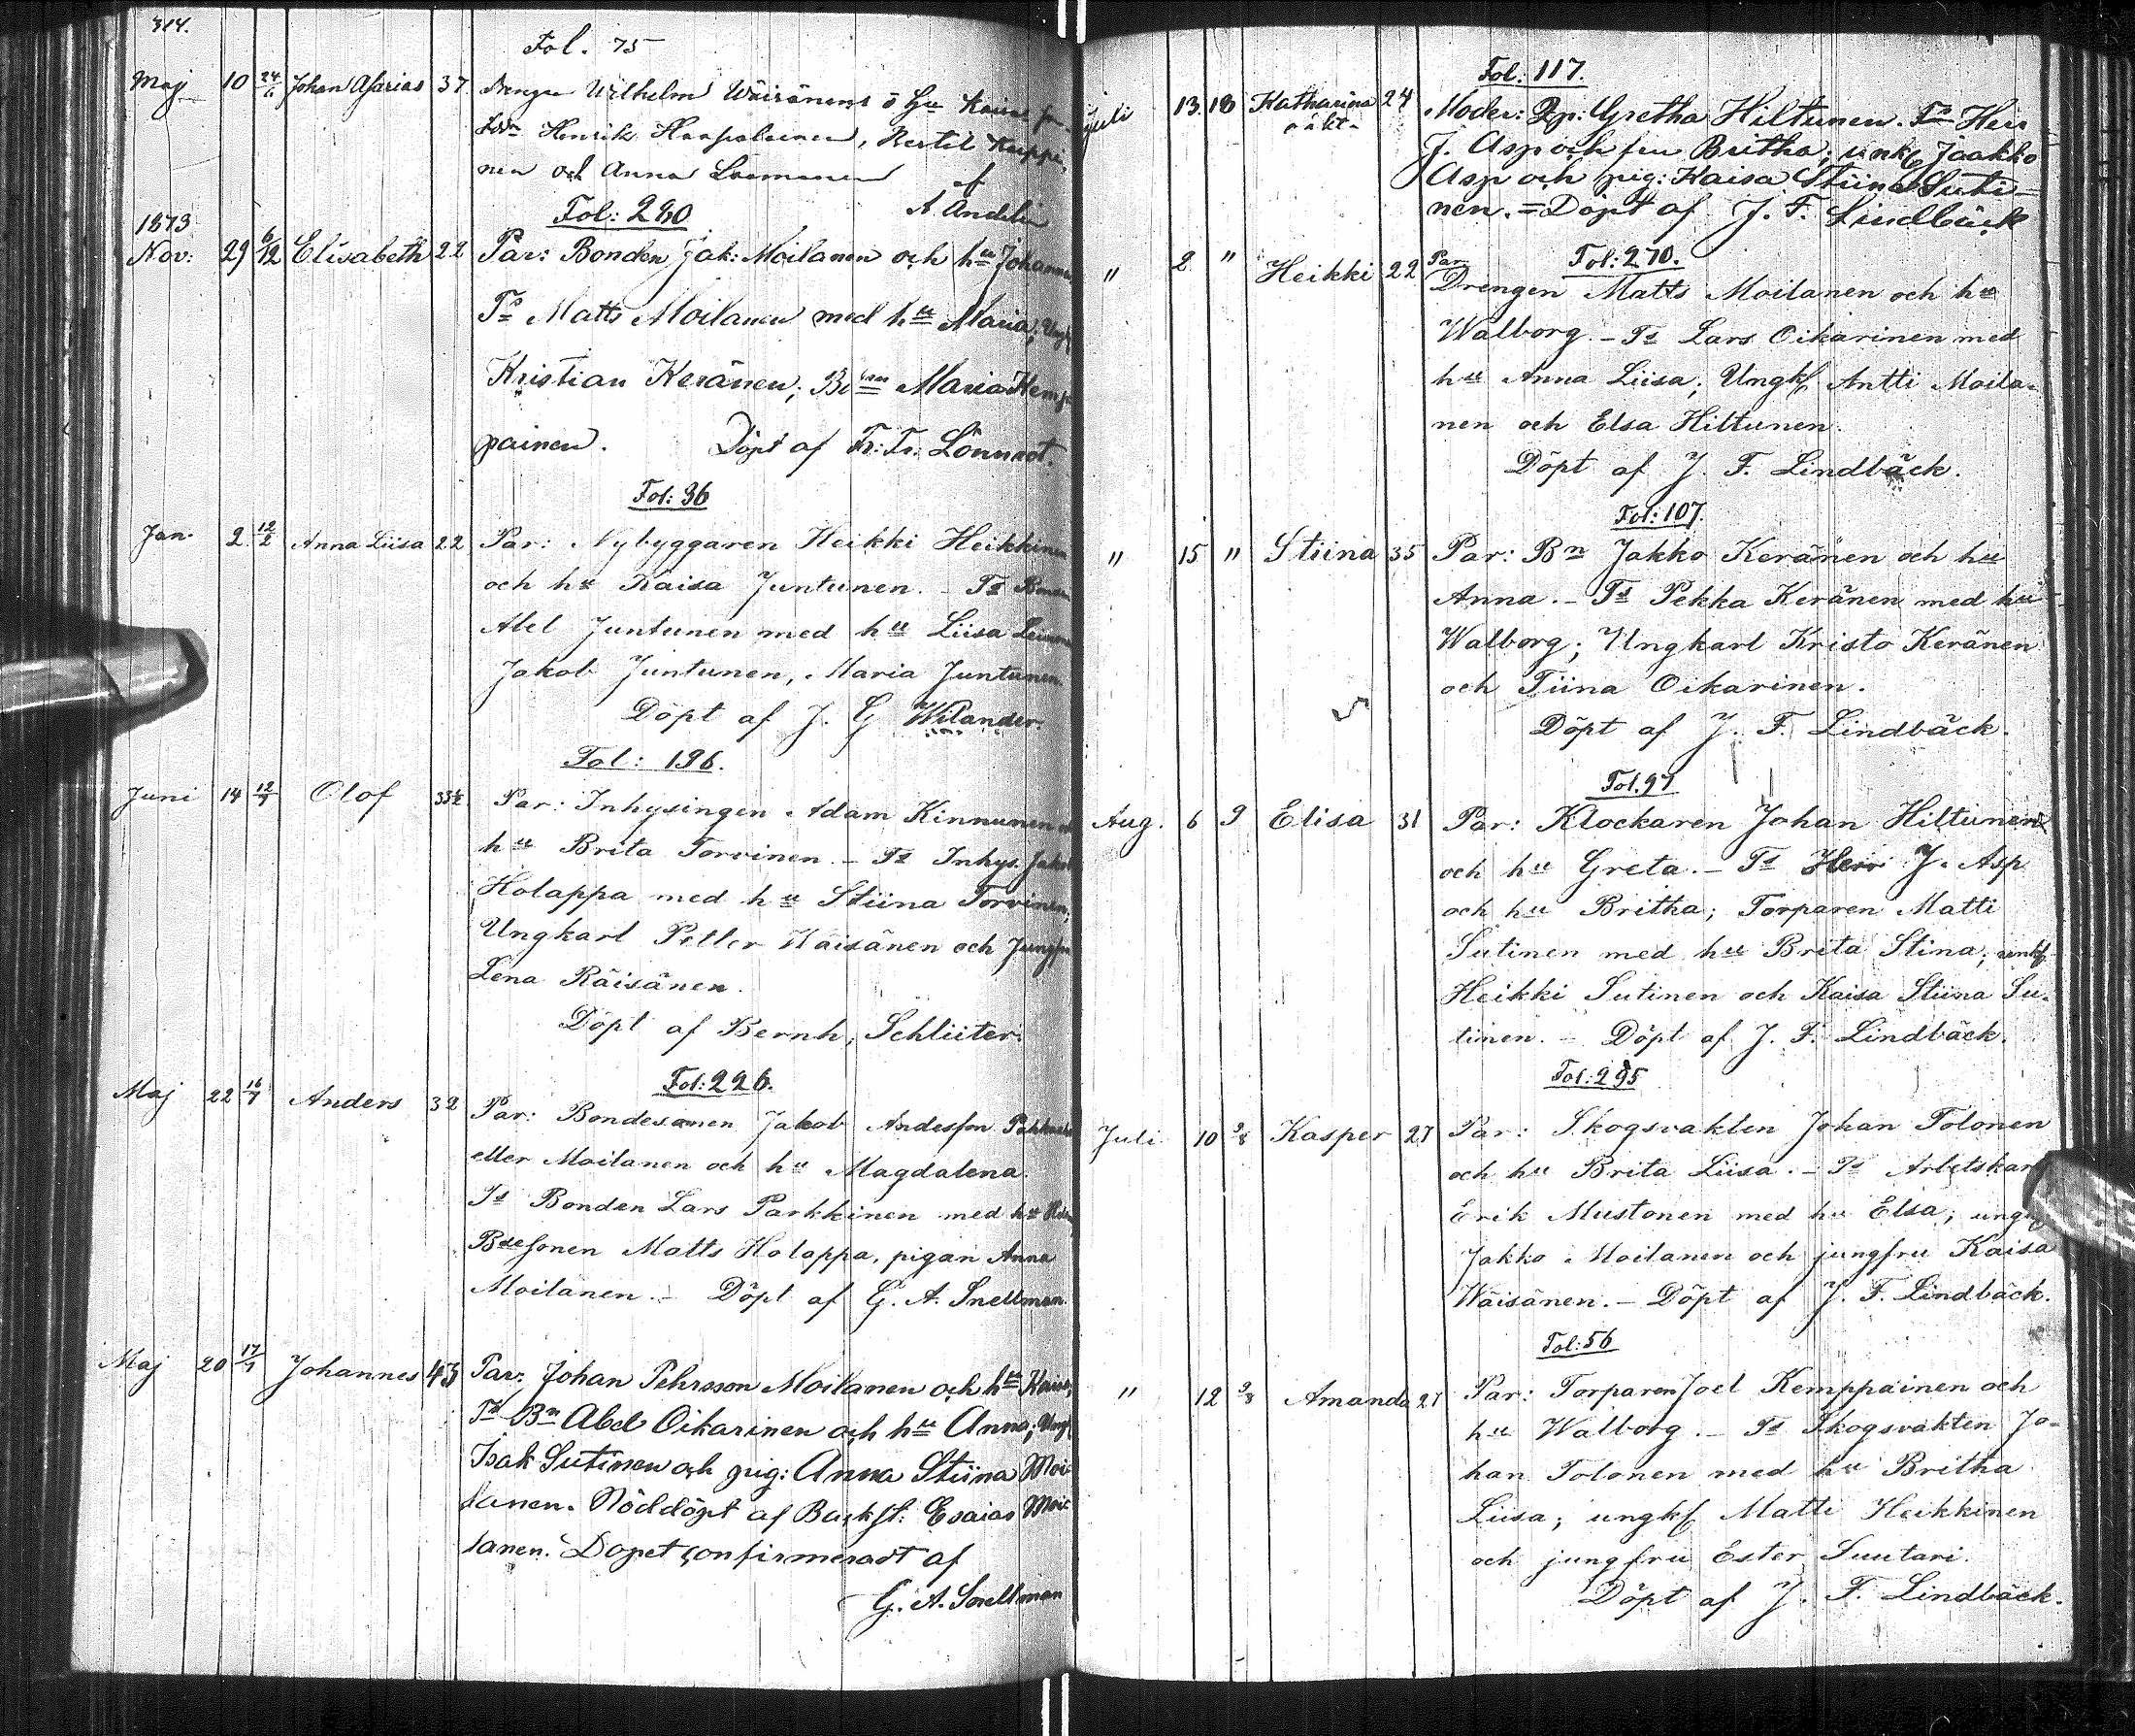 314.
Fol. 75
Maj 10 24/6 Johan Asarias 37 Drengen Wilhelm Wäisänens o hu Kaisas
Henrik Haapalainen, Bertil Keppi-
nen och Anna Loemanen af
A Andelin
Fol: 280
1873
Nov: 29 6/12 Elisabeth 22 Par: Bonden Jak: Moilanen och hu Johanna
Ts Matts Moilanen med hu Maria; Ungk
Kristian Keränen; Maria Kemp-
painen. Döpt af Fr: Fr. Lönnrot.
Fol: 36
Jan. 2 12/2 Anna Liisa 22 Par: Nybyggaren Heikki Heikkinen
och hu Kaisa Juntunen. – Ts Bonden
Abel Juntunen med hu Liisa
Jakob Juntunen, Maria Juntunen
Döpt af J. G Wilander.
Fol: 196.
Juni 14 12/7 Olof 33½ Par: Inhysingen Adam Kinnunen
hu Brita Torvinen. – Ts Inhys. Jakob
Holappa med hu Stiina Torvinen;
Ungkarl Petter Wäisänen och Jungfru
Lena Räisänen.
Döpt af Bernh, Schlüter.
Fol: 226.
Maj 22 16/7 Anders 32 Par: Bondesonen Jakob Andersson
eller Moilanen och hu Magdalena.
Ts Bonden Lars Parkkinen med hu
Bdesonen Matts Holappa, pigan Anna
Moilanen. – Döpt af G. A. Snellman.
Maj 20 17/7 Johannes 43 Par: Johan Pehrsson Moilanen och hu Kaisa,
Ts Bn Abel Oikarinen och hu Anna; Ungk
Isak Sutinen och pig: Anna Stiina Moi-
lanen. Nöddöpt af Backst: Esaias Moi-
lanen. Dopet confirmeradt af
G. A. Snellman
Fol: 117.
Juli 13. 18 Katharina 24 Moder: Pig: Gretha Hiltunen. Ts Herr
oäkt-
J. Asp och fru Britha; unk Jaakko
Asp och pig: Kaisa Stiina Suti-
nen. = Döpt af J. F. Lindbäck
Fol: 270.
" 2 " Heikki 22 Par Drengen Matts Moilanen och hu
Walborg. – Ts Lars Oikarinen med
hu Anna Liisa; Ungk Antti Moila-
nen och Elsa Hiltunen.
Döpt af J. F. Lindbäck.
Fol: 107.
" 15 " Stiina 35 Par: Bn Jakko Keränen och hu
Anna. – Ts Pekka Keränen med hu
Walborg; Ungkarl Kristo Keränen
och Tiina Oikarinen.
Döpt af J. F. Lindbäck.
Fol. 97
Aug. 6 9 Elisa 31 Par: Klockaren Johan Hiltunen
och hu Greta. – Ts Herr J. Asp
och hu Britha; Torparen Matti
Sutinen med hu Brita Stina; unk
Heikki Sutinen och Kaisa Stiina Su-
tinen. – Döpt af J. F. Lindbäck.
Fol: 295
Juli 10 9/8 Kasper 27 Par: Skogsvakten Johan Tolonen
och hu Brita Liisa. – Ts Arbetskarl
Erik Mustonen med hu Elsa; ungk
Jakko Moilanen och jungfru Kaisa
Wäisänen. – Döpt af J. F. Lindbäck.
Fol: 56
" 12 9/8 Amanda 27 Par: Torparen Joel Kemppainen och
hu Walborg. – Ts Skogsvakten Jo-
han Tolonen med hu Britha
Liisa; ungk Matti Heikkinen
och jungfru Ester Suutari.
Döpt af J. F. Lindbäck.